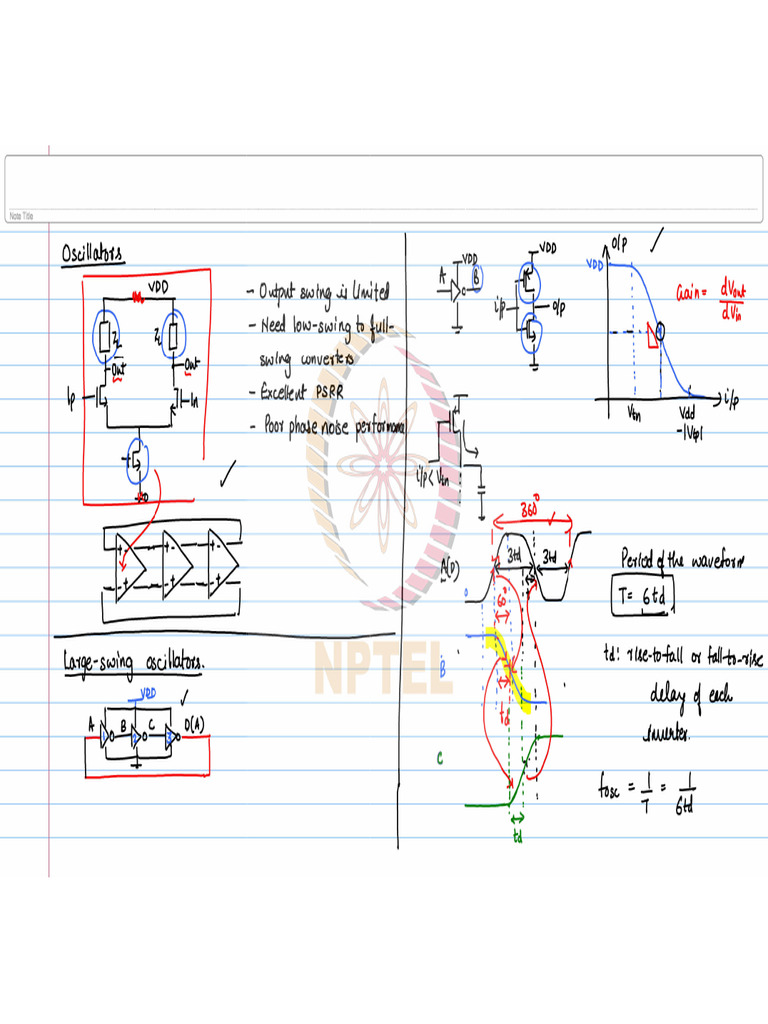 Note Title
Oscillators
VDD
ZL
ZL
Out
Out
Ip
In
- Output swing is limited
- Need low-swing to full-
swing converters
- Excellent PSRR
- Poor phase noise performance
+ - + - + -
- + - + - +
Large-swing oscillators.
VDD
A 1 B 2 C 3 D(A)
VDD
A B
VDD
i/p o/p
O/P
VDD
Gain = dVout / dVin
Vtn
Vdd
-|Vtp|
i/p
i/p < Vtn
360°
A(D)
3td 3td
0
B
td
C
td
Period of the waveform
T = 6td
td: rise-to-fall or fall-to-rise
delay of each
inverter.
fosc = 1/T = 1/6td
NPTEL